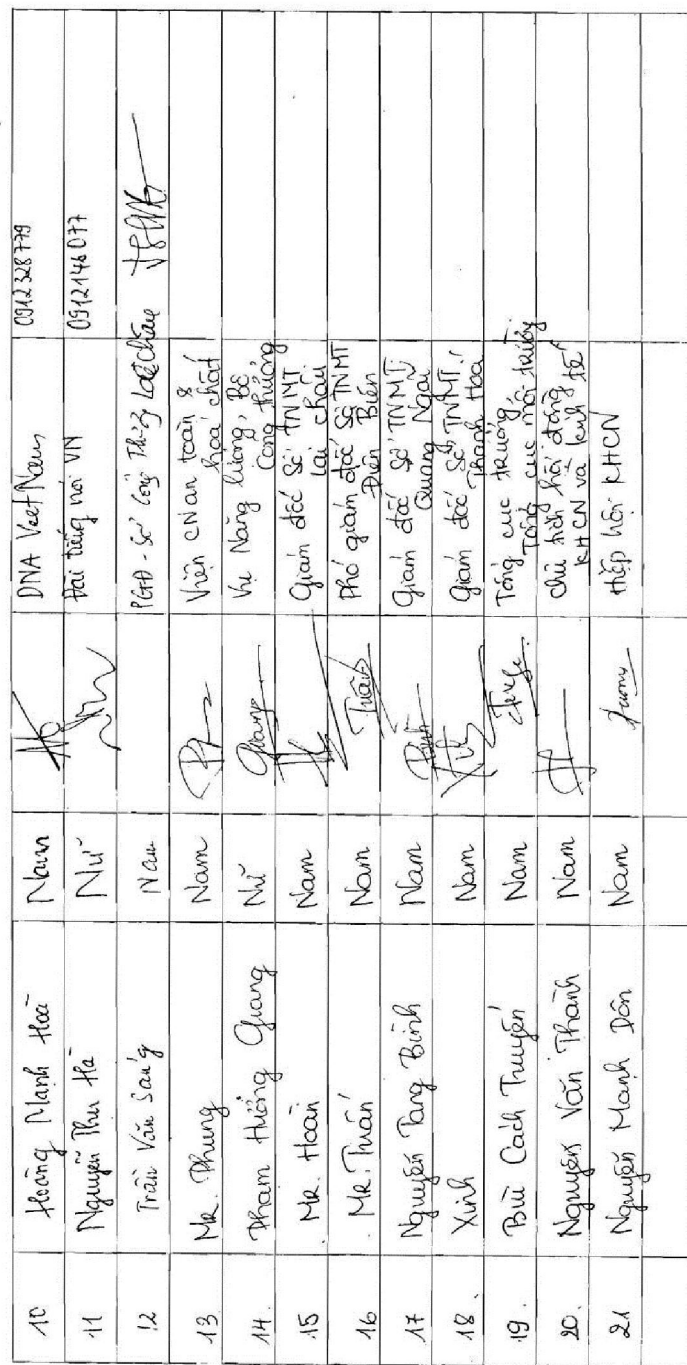 10 Hoàng Mạnh Hoà Nam DNA Viet Nam 0912328779
11 Nguyễn Thu Hà Nữ Đài tiếng nói VN 0912146077
12 Trần Văn Sang Nam PGĐ - Sở Công Thương Lai Châu
13 Mr. Phung Nam Viện CN an toàn &
hoá chất
14. Phạm Hường Giang Nữ Giang Vụ Năng lượng, Bộ
Công thương
15 Mr. Hoàn Nam Giám đốc Sở TNMT
Lai Châu
16 Mr. Tuấn Nam Tuấn Phó giám đốc Sở TNMT
Điện Biên
17 Nguyễn Tang Bình Nam Bình Giám đốc Sở TNMT
Quảng Ngãi
18. Xinh Nam Giám đốc Sở TNMT
Thanh Hoá
19. Bùi Cách Tuyến Nam Tổng cục trưởng
Tổng cục môi trường
20. Nguyễn Văn Thành Nam Chủ tịch hội đồng
KHCN và kinh tế
21 Nguyễn Mạnh Dôn Nam Hiệp hội KHCN